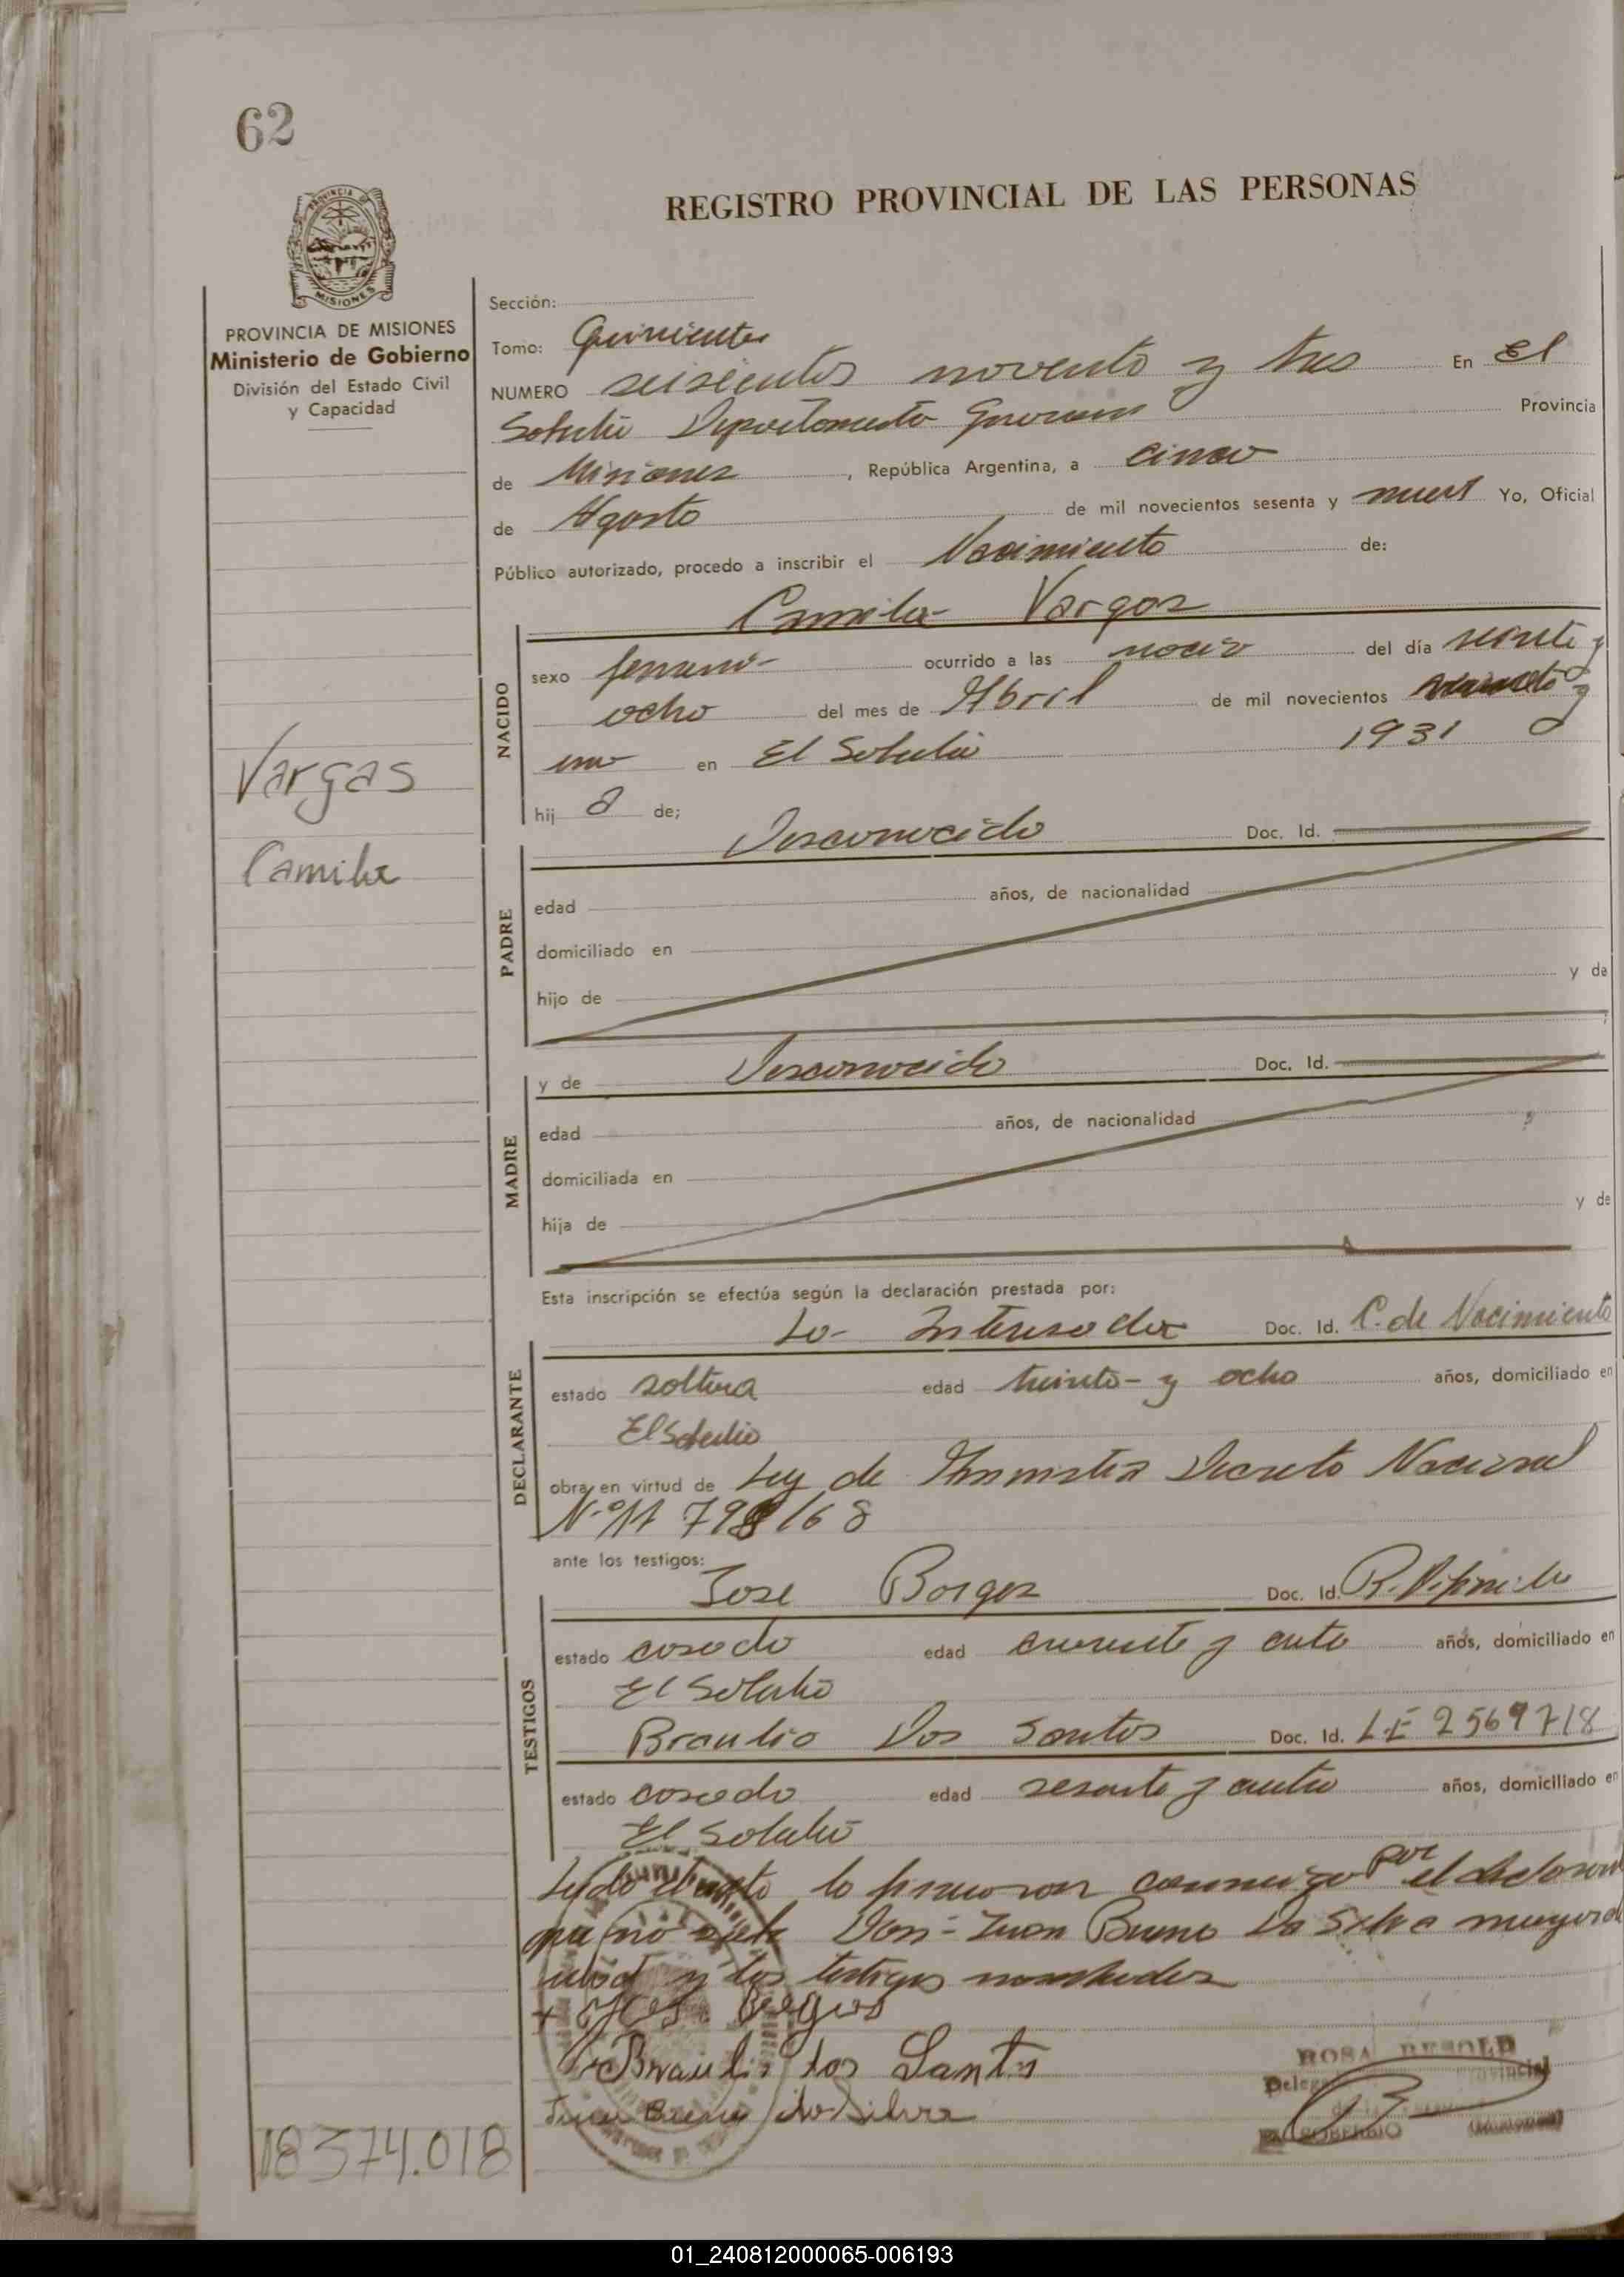 62
REGISTRO PROVINCIAL DE LAS PERSONAS
PROVINCIA
MISIONES
PROVINCIA DE MISIONES
Ministerio de Gobierno
División del Estado Civil
y Capacidad
Vargas
Camila
18374.018
Sección:
Tomo: Quinientos
NUMERO seiscientos noventa y tres En El
Soberbio Departamento Guaraní Provincia
de Misiones, República Argentina, a cinco
de Agosto de mil novecientos sesenta y nueve Yo, Oficial
Público autorizado, procedo a inscribir el Nacimiento de:
Camila Vargas
NACIDO
sexo femeni- ocurrido a las del día veinte y
ocho del mes de Abril de mil novecientos y
uno en El Soberbio 1931
hij a de;
PADRE
Desconocido Doc. Id.
edad años, de nacionalidad
domiciliado en
hijo de y de
MADRE
y de Desconocido Doc. Id.
edad años, de nacionalidad
domiciliada en
hija de y de
Esta inscripción se efectúa según la declaración prestada por:
DECLARANTE
La Interesada Doc. Id. C. de Nacimiento
estado soltera edad treinta y ocho años, domiciliado en
El Soberbio
obra en virtud de Ley de Amnistia Decreto Nacional
N° 11 798/68
ante los testigos:
TESTIGOS
Jose Borges Doc. Id.
estado casado edad años, domiciliado en
El Soberbio
Braulio Dos Santos Doc. Id. LE 2569718
estado casado edad sesenta y cuatro años, domiciliado en
El Soberbio
Leido el acta lo firmaron conmigo por el
que no Don Juan Bueno Da Silva mayor de
edad y los testigos nombrados
Braulio dos Santos
Juan Bueno da Silva
ROSA
Provincial
EL SOBERBIO (Misiones)
01_240812000065-006193